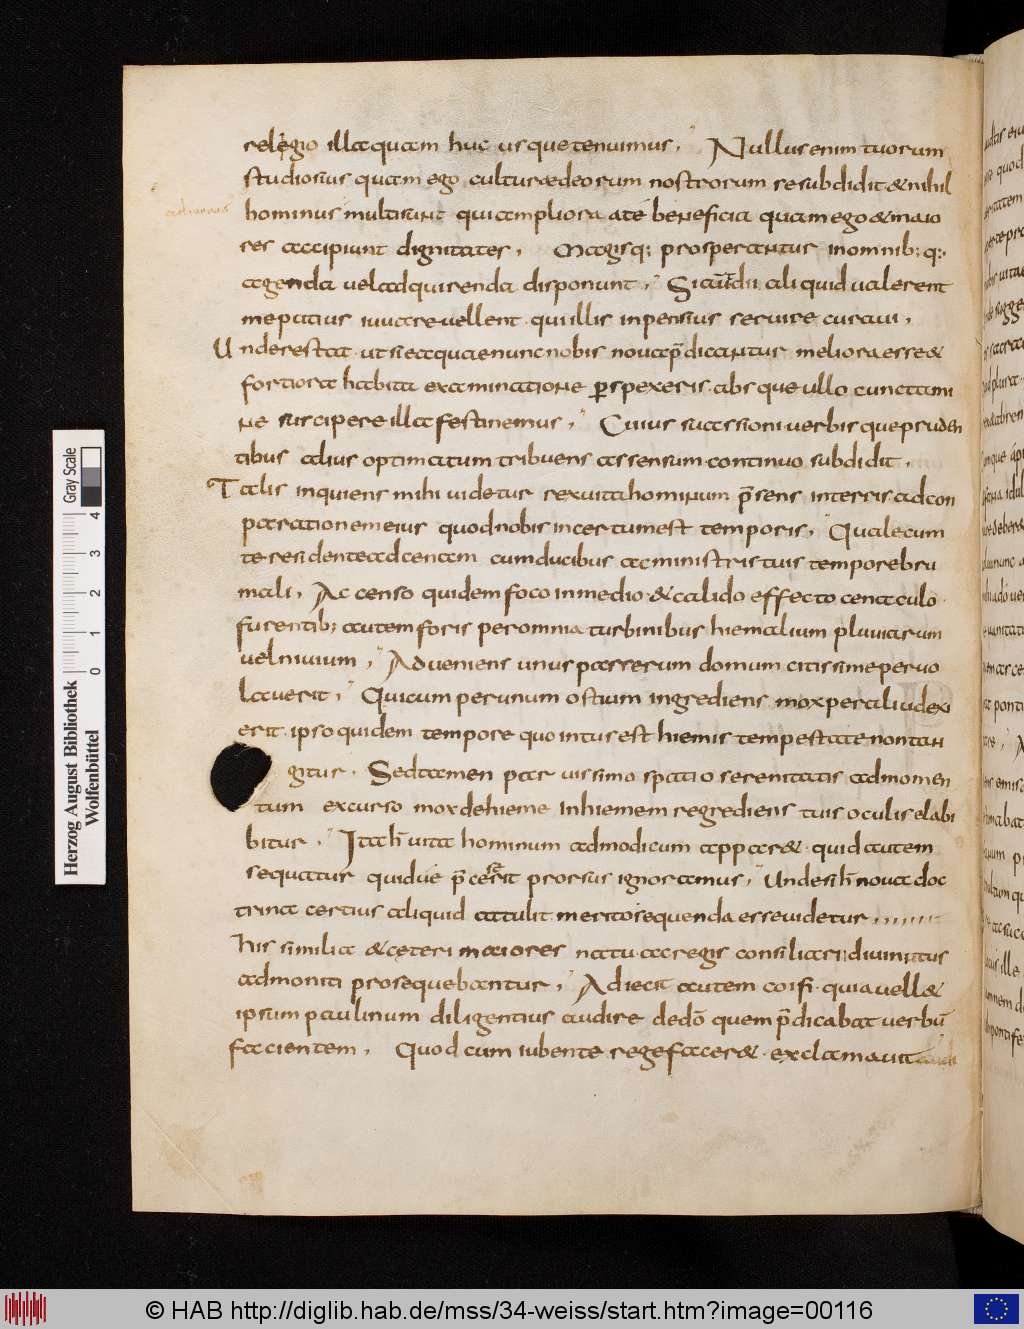 relegio illa quam huc usque tenuimus. Nullus enim tuorum
studiosius quam ego culturae deorum nostrorum se subdidit & nihil
hominus multi sunt qui ampliora a te beneficia quam ego & maio
res accipiunt dignitates, Magisq; prosperantur in omnib; q;
agenda vel adquirenda disponunt. Si aut dii aliquid valerent
me potius iuuare vellent. qui illis inpensius seruire curaui,
Unde restat ut si ea quae nunc nobis noua p̄dicantur meliora esse &
fortiora habita examinatione perspexeris. absque ullo cunctami
ne suscipere illa festinemus, Cuius suassioni verbisque pruden
tibus alius optimatum tribuens assensum continuo subdidit.
Talis inquiens mihi uidetur rex uita hominum p̄sens interris ad con
parationem eius quod nobis incertum est temporis, Quale cum
te residente ad cenam cum ducibus ac ministris tuis tempore bru
mali, Ac censo quidem foco in medio & calido effecto cenaculo.
furentib; autem foris per omnia turbinibus hiemalium pluuiarum
vel niuium, Adueniens unus passerum domum citissime peruo
lauerit, Qui cum per unum ostium ingrediens mox per aliud exi
erit. ipso quidem tempore quo intus est hiemis tempestate non tan
gitur. Sed tamen paruissimo spatio serenitatis ad momen
tum excurso mox de hieme in hiemem regrediens tuis oculis elabi
bitur. Ita h̄ uita hominum ad modicum appar&. quid autem
sequatur quidue p̄cesserit prorsus ignoramus, Unde si h̄ noua doc
trina certius aliquid attulit merito sequenda esse uidetur,,,,,,,
his similia & ceteri maiores natu ac regis consiliarii diuinitus
admoniti prosequebantur, Adiecit autem coifi. quia uell&
ipsum paulinum diligentius audire de dō quem p̄dicabat verbū
facientem. Quod cum iubente rege facer&. exclamauit
Herzog August Bibliothek
Wolfenbüttel
0 1 2 3 4
Gray Scale
© HAB http://diglib.hab.de/mss/34-weiss/start.htm?image=00116